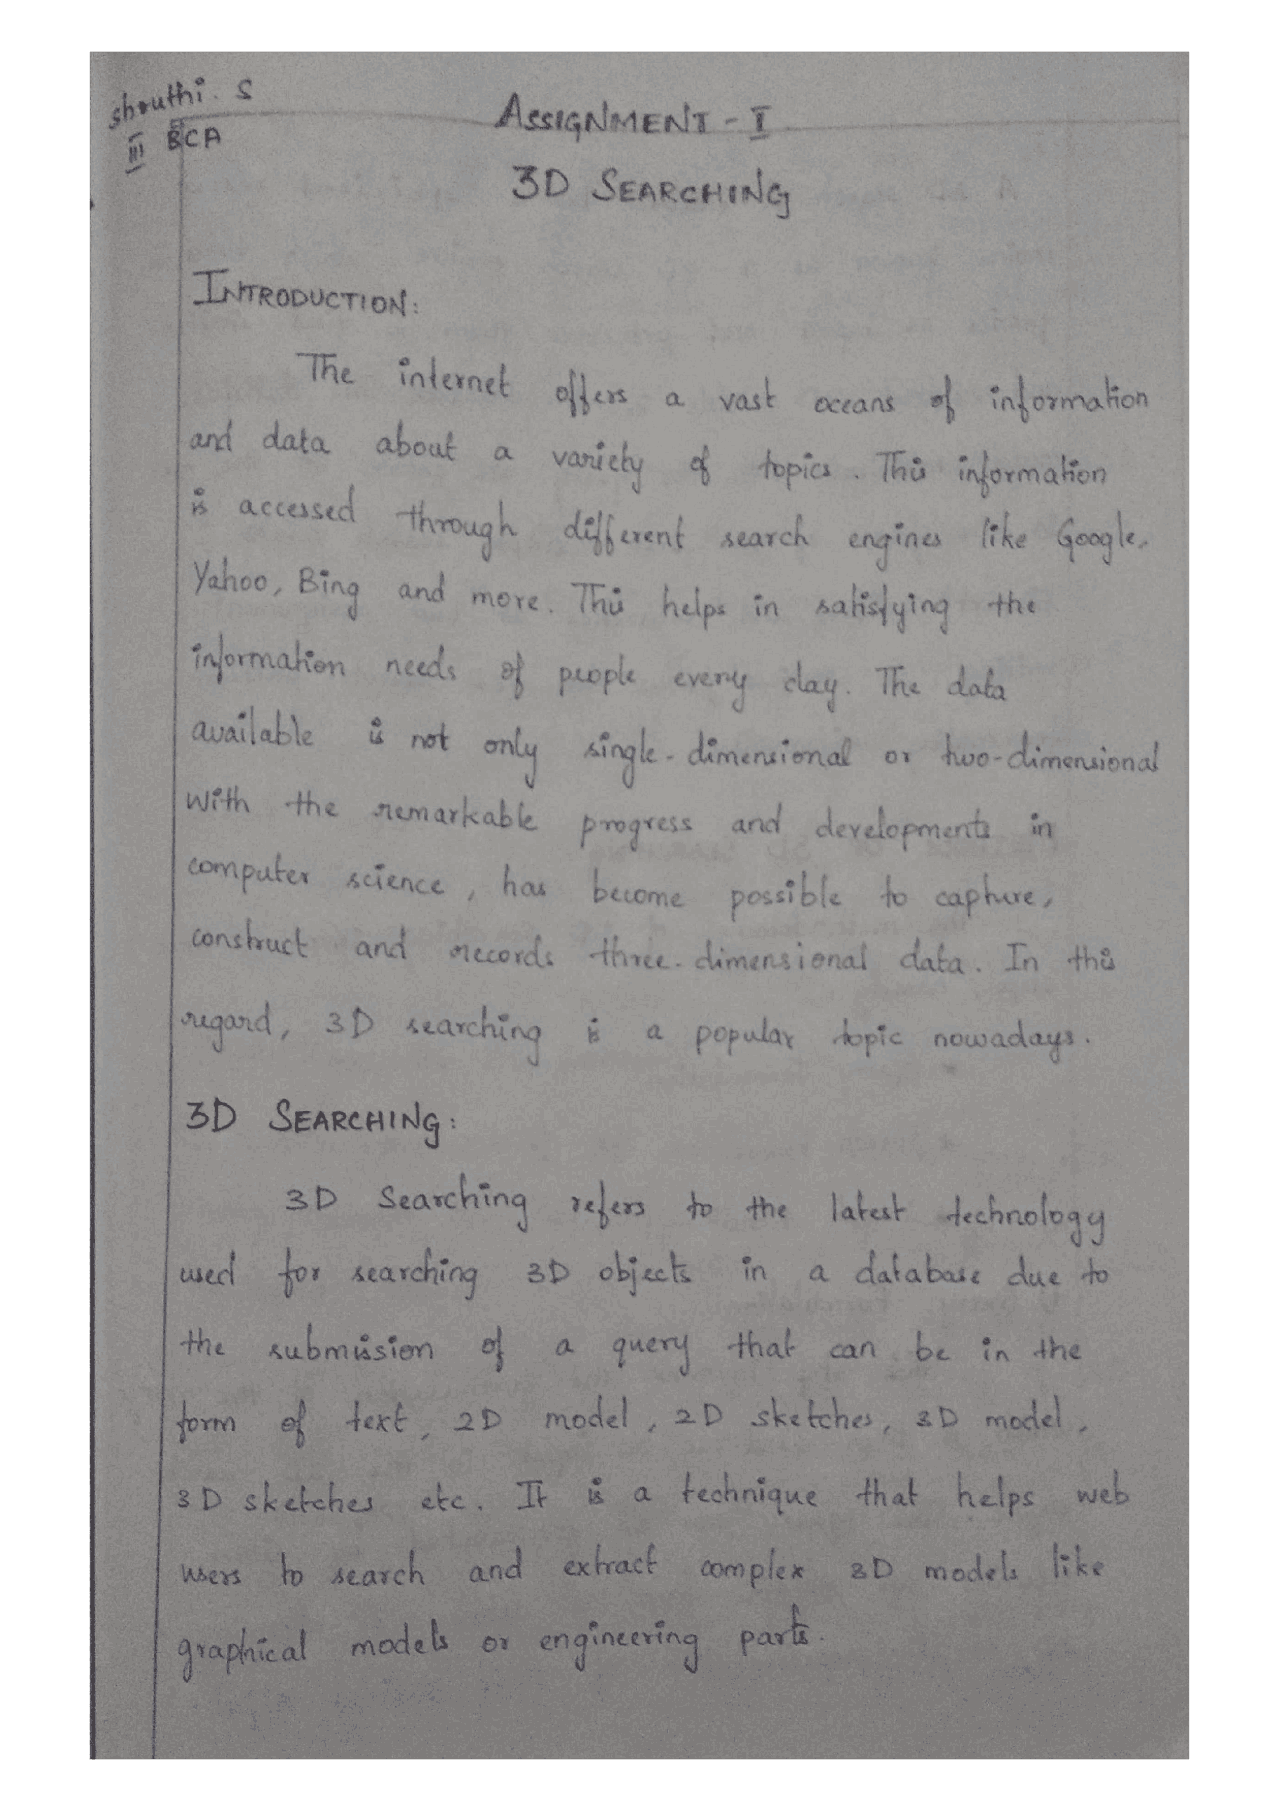 Shruthi. S
III BCA
ASSIGNMENT - I
3D SEARCHING
INTRODUCTION:
The internet offers a vast oceans of information
and data about a variety of topics. This information
is accessed through different search engines like Google,
Yahoo, Bing and more. This helps in satisfying the
information needs of people every day. The data
available is not only single-dimensional or two-dimensional
With the remarkable progress and developments in
computer science, has become possible to capture,
construct and records three-dimensional data. In this
regard, 3D searching is a popular topic nowadays.
3D SEARCHING:
3D Searching refers to the latest technology
used for searching 3D objects in a database due to
the submission of a query that can be in the
form of text, 2D model, 2D sketches, 3D model,
3D sketches etc. It is a technique that helps web
users to search and extract complex 3D models like
graphical models or engineering parts.